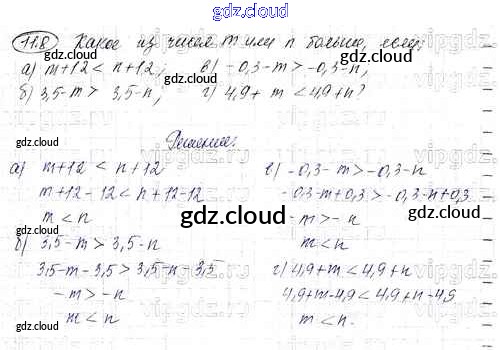 gdz.cloud
11.8 Какое из чисел m или n больше, если:
а) m+12 < n+12; в) -0,3-m > -0,3-n;
б) 3,5-m > 3,5-n; г) 4,9+m < 4,9+n?
Решение:
а) m+12 < n+12
m+12-12 < n+12-12
m < n
б) 3,5-m > 3,5-n
3,5-m-3,5 > 3,5-n-3,5
-m > -n
m < n
в) -0,3-m > -0,3-n
-0,3-m+0,3 > -0,3-n+0,3
-m > -n
m < n
г) 4,9+m < 4,9+n
4,9+m-4,9 < 4,9+n-4,9
m < n.
gdz.cloud